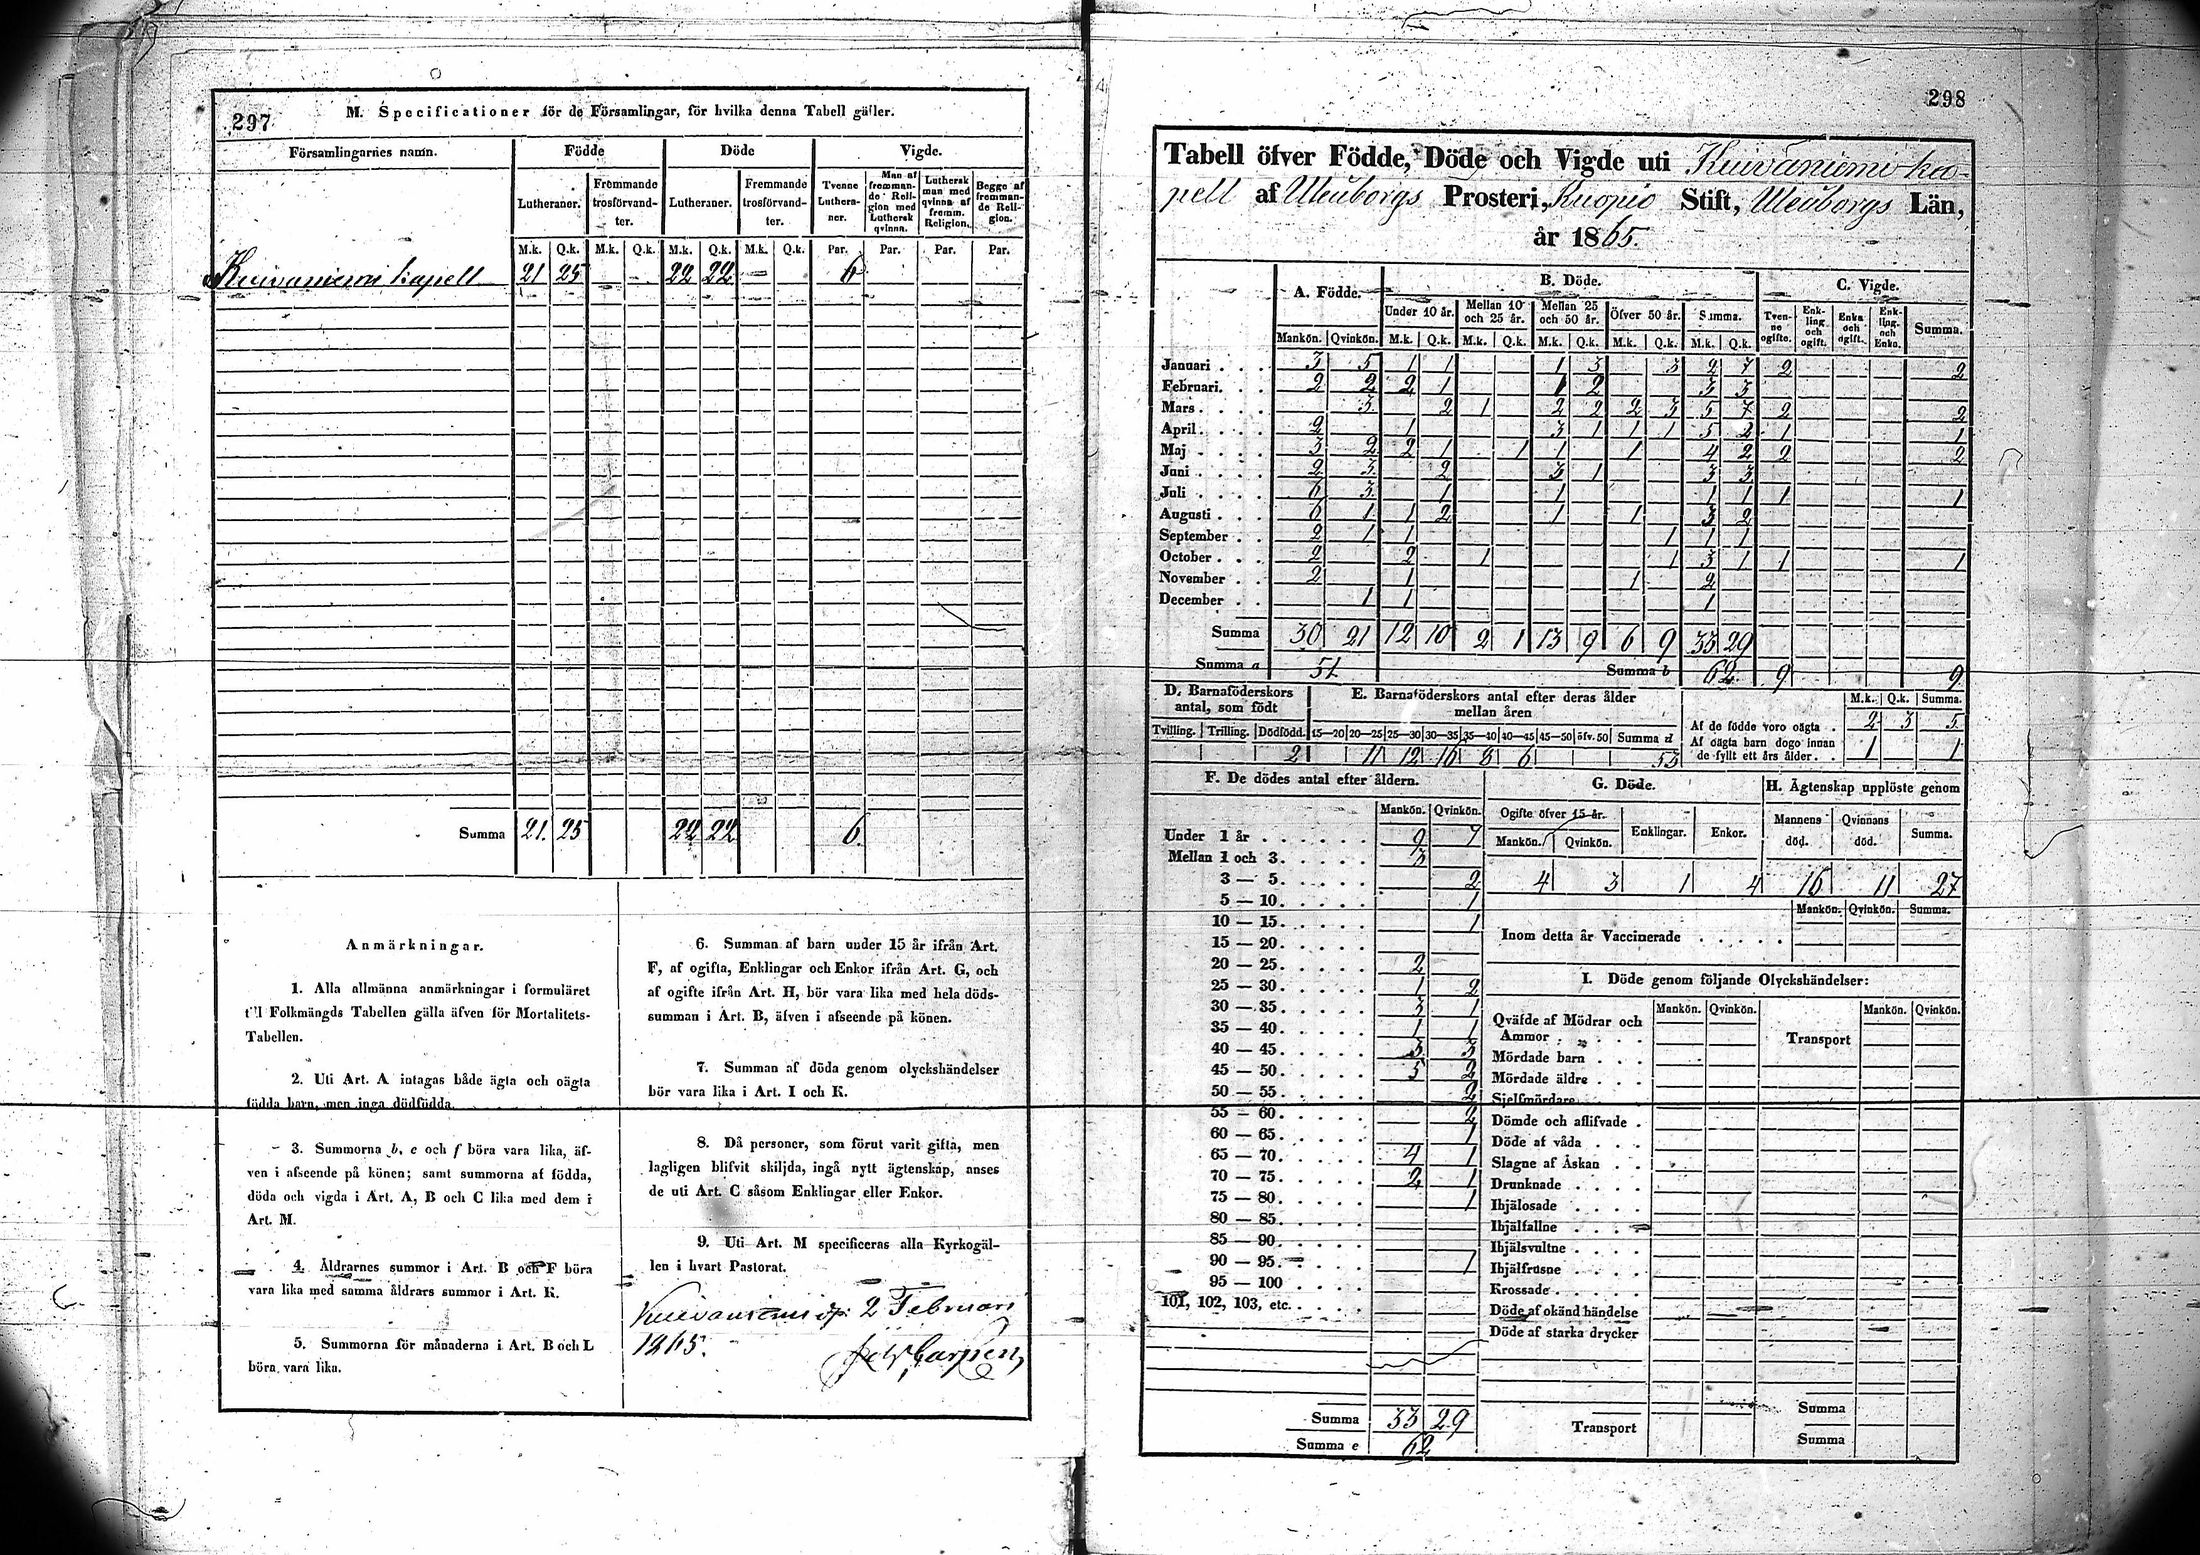 297
M. Specificationer för de Församlingar, för hvilka denna Tabell gäller.
Församlingarnes namn. Födde Döde Vigde.
Lutheraner. Fremmande trosförvand-ter. Lutheraner. Fremmande trosförvand-ter. Tvenne Luthera-ner. Man af fremman-de Reli-gion med Luthersk qvinna. Luthersk man med qvinna af fremm. Religion. Begge af fremman-de Reli-gion.
M.k. Q.k. M.k. Q.k. M.k. Q.k. M.k. Q.k. Par. Par. Par. Par.
Kuivaniemi kapell 21 25 — - 22 22 — 6
Summa 21. 25 22 22 6.
Anmärkningar.
1. Alla allmänna anmärkningar i formuläret
till Folkmängds Tabellen gälla äfven för Mortalitets-
Tabellen.
2. Uti Art. A intagas både ägta och oägta
födda barn, men inga dödfödda.
3. Summorna b, e och f böra vara lika, äf-
ven i afseende på könen; samt summorna af födda,
döda och vigda i Art. A, B och C lika med dem i
Art. M.
4. Åldrarnes summor i Art. B och F böra
vara lika med samma åldrars summor i Art. K.
5. Summorna för månaderna i Art. B och L
böra vara lika.
6. Summan af barn under 15 år ifrån Art.
F, af ogifta, Enklingar och Enkor ifrån Art. G, och
af ogifte ifrån Art. H, bör vara lika med hela döds-
summan i Art. B, äfven i afseende på könen.
7. Summan af döda genom olyckshändelser
bör vara lika i Art. I och K.
8. Då personer, som förut varit gifta, men
lagligen blifvit skiljda, ingå nytt ägtenskap, anses
de uti Art. C såsom Enklingar eller Enkor.
9. Uti Art. M specificeras alla Kyrkogäl-
len i hvart Pastorat.
2 Februari
1865.
298
Tabell öfver Födde, Döde och Vigde uti Kuivaniemi ka-
pell af Uleuborgs Prosteri, Kuopio Stift, Uleuborgs Län,
år 1865.
A. Födde. B. Döde. C. Vigde.
Under 10 år. Mellan 10 och 25 år. Mellan 25 och 50 år. Öfver 50 år. Summa. Tven-ne ogifte. Enk-ling och ogift. Enka och ogift. Enk-ling och Enka. Summa.
Mankön. Qvinkön. M.k. Q.k. M.k. Q.k. M.k. Q.k. M.k. Q.k. M.k. Q.k.
Januari 3 5 1 1 1 3 3 2 7 2 2
Februari. 2 2 2 1 1 2 3 3
Mars 3. 2 1 2 2 2 3 5 7 2 2
April. 2 1 3 1 1 1 5 2 1 1
Maj 3 2 2 1 1 1 1 4 2 2 2
Juni 2 3. 2 3 1 3 3
Juli 6 3. 1 1 1 1 1 1
Augusti 6 1 1 2 1 1 3 2
September 2 1 1 1 1 1
October 2 2 1 1 3 1 1 1
November 2 1 1 2
December 1 1 1
Summa 30 21 12 10 2 1 13 9 6 9 33 29
Summa a 51 Summa b 62. 9 9
D. Barnaföderskors antal, som födt
E. Barnaföderskors antal efter deras ålder mellan åren
M.k. Q.k. Summa.
Tvilling. Trilling. Dödfödd. 15—20 20—25 25—30 30—35 35—40 40—45 45—50 öfv. 50 Summa d
2 11 12 16 8 6 53
Af de födde voro oägta 2 3 5.
Af oägta barn dogo innan
de fyllt ett års ålder 1 1
F. De dödes antal efter åldern.
Mankön. Qvinkön.
Under 1 år 9 7
Mellan 1 och 3. 3
3 — 5. 2
5 — 10. 1
10 — 15. 1
15 — 20.
20 — 25. 2
25 — 30. 1 2
30 — 35. 3 1
35 — 40. 1 1
40 — 45. 3 3
45 — 50. 5 2
50 — 55. 2
55 — 60. 2
60 — 65. 1
65 — 70. 4 1
70 — 75. 2 1
75 — 80. 1
80 — 85.
85 — 90.
90 — 95. 1
95 — 100
101, 102, 103, etc.
Summa 33 29
Summa e 62
G. Döde.
Ogifte öfver 15 år. Enklingar. Enkor.
Mankön. Qvinkön.
4 3 1 4
H. Ägtenskap upplöste genom
Mannens död. Qvinnans död. Summa.
16 11 27
Mankön. Qvinkön. Summa.
Inom detta år Vaccinerade
I. Döde genom följande Olyckshändelser:
Mankön. Qvinkön. Mankön. Qvinkön.
Qväfde af Mödrar och
Ammor Transport
Mördade barn
Mördade äldre
Sjelfmördare
Dömde och aflifvade
Döde af våda
Slagne af Åskan
Drunknade
Ihjälosade
Ihjälfallne
Ihjälsvultne
Ihjälfrusne
Krossade
Döde af okänd händelse
Döde af starka drycker
Summa
Transport
Summa